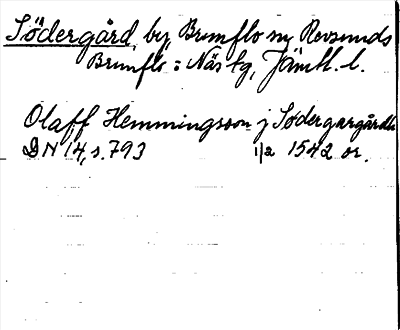 Södergård, by, Brunflo sn, Revsunds
Brunflo : Näs tg, Jämtl. l.
Olaff Hemmingson j Södergargårdh
DN 14, s. 793 1/2 1542 or.